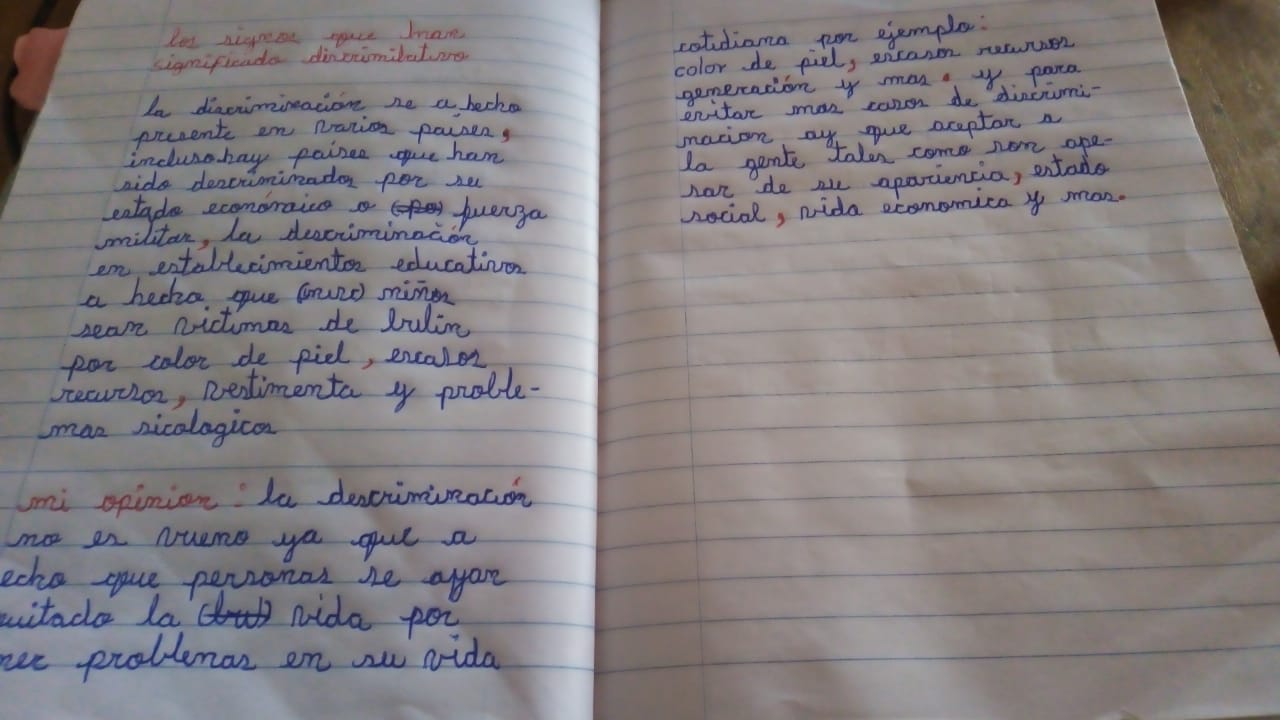 los signos que han
significado discrimibativo
la discriminación se a hecho
presente en varios países,
incluso hay países que han
sido descriminados por su
estado económico o (po) fuerza
militar, la descriminación
en establecimientos educativos
a hecho que niños
sean victimas de bulin
por color de piel, escasos
recursos, vestimenta y proble-
mas sicologicos
mi opinion: la descriminación
no es vueno ya que a
echo que personas se ayan
uitado la vida por
ner problemas en su vida
cotidiana por ejemplo:
color de piel, escasos recursos
generación y mas. y para
evitar mas casos de discrimi-
nacion ay que aceptar a
la gente tales como son ape-
sar de su apariencia, estado
social, vida economica y mas.